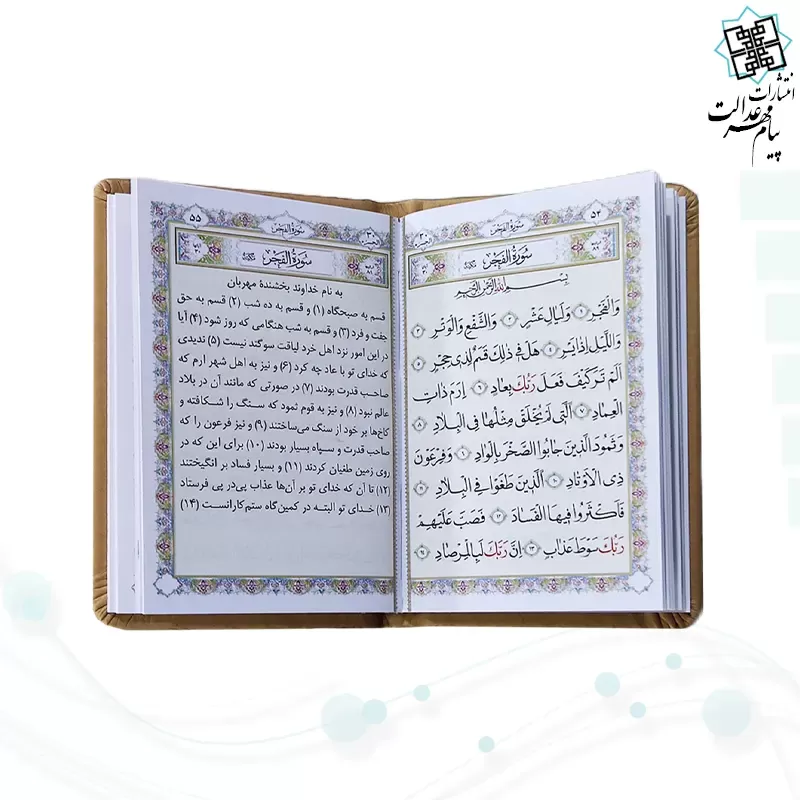 انتشارات
پیام مهر عدالت
۵۴
سورة الفجر
سورة الفجر
بسم الله الرحمن الرحیم
وَالْفَجْرِ ۱ وَلَيَالٍ عَشْرٍ ۲ وَالشَّفْعِ وَالْوَتْرِ ۳
وَاللَّيْلِ إِذَا يَسْرِ ۴ هَلْ فِي ذٰلِكَ قَسَمٌ لِذِي حِجْرٍ ۵
أَلَمْ تَرَ كَيْفَ فَعَلَ رَبُّكَ بِعَادٍ ۶ إِرَمَ ذَاتِ
الْعِمَادِ ۷ الَّتِي لَمْ يُخْلَقْ مِثْلُهَا فِي الْبِلَادِ ۸
وَثَمُودَ الَّذِينَ جَابُوا الصَّخْرَ بِالْوَادِ ۹ وَفِرْعَوْنَ
ذِي الْأَوْتَادِ ۱۰ الَّذِينَ طَغَوْا فِي الْبِلَادِ ۱۱
فَأَكْثَرُوا فِيهَا الْفَسَادَ ۱۲ فَصَبَّ عَلَيْهِمْ
رَبُّكَ سَوْطَ عَذَابٍ ۱۳ إِنَّ رَبَّكَ لَبِالْمِرْصَادِ ۱۴
۵۵
سورة الفجر
سورة الفجر
به نام خداوند بخشندهٔ مهربان
قسم به صبحگاه (۱) و قسم به ده شب (۲) قسم به حق
جفت و فرد (۳) و قسم به شب هنگامی که روز شود (۴) آیا
در این امور نزد اهل خرد لیاقت سوگند نیست (۵) ندیدی
که خدای تو با عاد چه کرد (۶) و نیز به اهل شهر ارم که
صاحب قدرت بودند (۷) در صورتی که مانند آن در بلاد
عالم نبود (۸) و نیز به قوم ثمود که سنگ را شکافته و
کاخ‌ها بر خود از سنگ می‌ساختند (۹) و نیز فرعون را که
صاحب قدرت و سپاه بسیار بودند (۱۰) برای این که در
روی زمین طغیان کردند (۱۱) و بسیار فساد بر انگیختند
(۱۲) تا آن که خدای تو بر آن‌ها عذاب پی‌در پی فرستاد
(۱۳) خدای تو البته در کمین‌گاه ستم‌کارانست (۱۴)